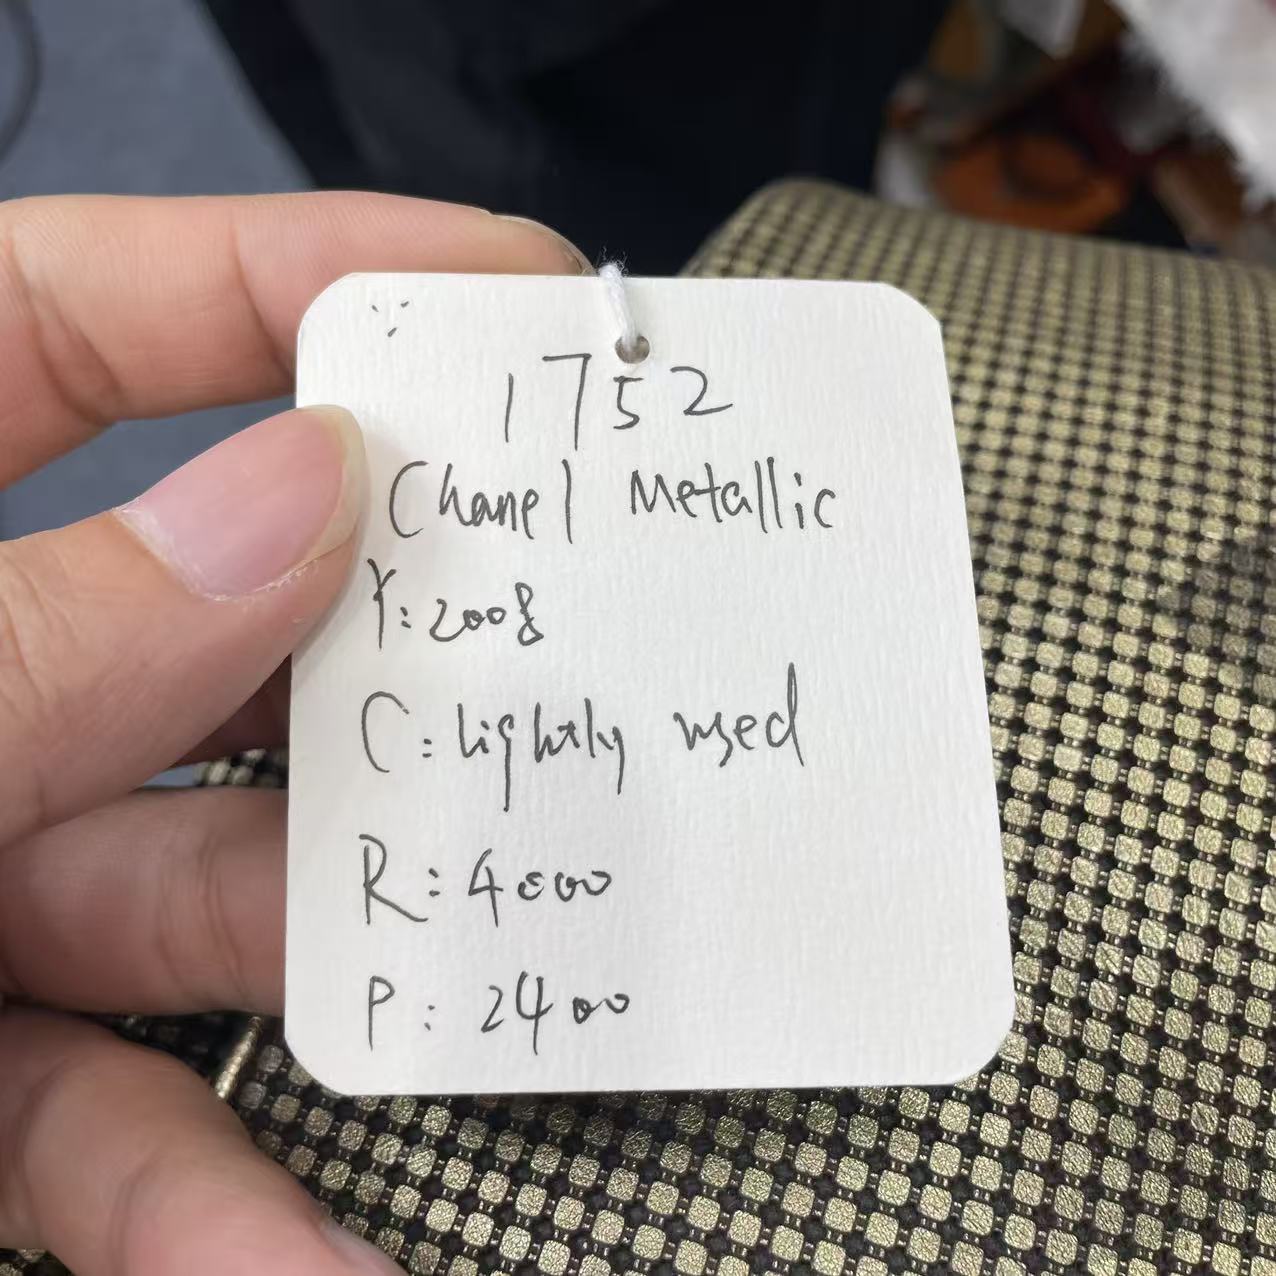 1752
Chanel Metallic
Y: 2008
C: lightly used
R: 4000
P: 2400